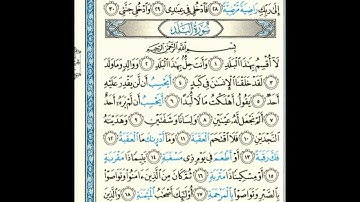 إِلَىٰ رَبِّكِ رَاضِيَةً مَّرْضِيَّةً ٢٨ فَادْخُلِي فِي عِبَادِي ٢٩ وَادْخُلِي جَنَّتِي ٣٠
سُورَةُ الْبَلَدِ
بِسْمِ اللَّهِ الرَّحْمَٰنِ الرَّحِيمِ
لَا أُقْسِمُ بِهَٰذَا الْبَلَدِ ١ وَأَنتَ حِلٌّ بِهَٰذَا الْبَلَدِ ٢ وَوَالِدٍ وَمَا وَلَدَ
٣ لَقَدْ خَلَقْنَا الْإِنسَانَ فِي كَبَدٍ ٤ أَيَحْسَبُ أَن لَّن يَقْدِرَ عَلَيْهِ
أَحَدٌ ٥ يَقُولُ أَهْلَكْتُ مَالًا لُّبَدًا ٦ أَيَحْسَبُ أَن لَّمْ يَرَهُ أَحَدٌ
٧ أَلَمْ نَجْعَل لَّهُ عَيْنَيْنِ ٨ وَلِسَانًا وَشَفَتَيْنِ ٩ وَهَدَيْنَاهُ
النَّجْدَيْنِ ١٠ فَلَا اقْتَحَمَ الْعَقَبَةَ ١١ وَمَا أَدْرَاكَ مَا الْعَقَبَةُ ١٢
فَكُّ رَقَبَةٍ ١٣ أَوْ إِطْعَامٌ فِي يَوْمٍ ذِي مَسْغَبَةٍ ١٤ يَتِيمًا ذَا مَقْرَبَةٍ
١٥ أَوْ مِسْكِينًا ذَا مَتْرَبَةٍ ١٦ ثُمَّ كَانَ مِنَ الَّذِينَ آمَنُوا وَتَوَاصَوْا
بِالصَّبْرِ وَتَوَاصَوْا بِالْمَرْحَمَةِ ١٧ أُولَٰئِكَ أَصْحَابُ الْمَيْمَنَةِ ١٨ وَالَّذِينَ